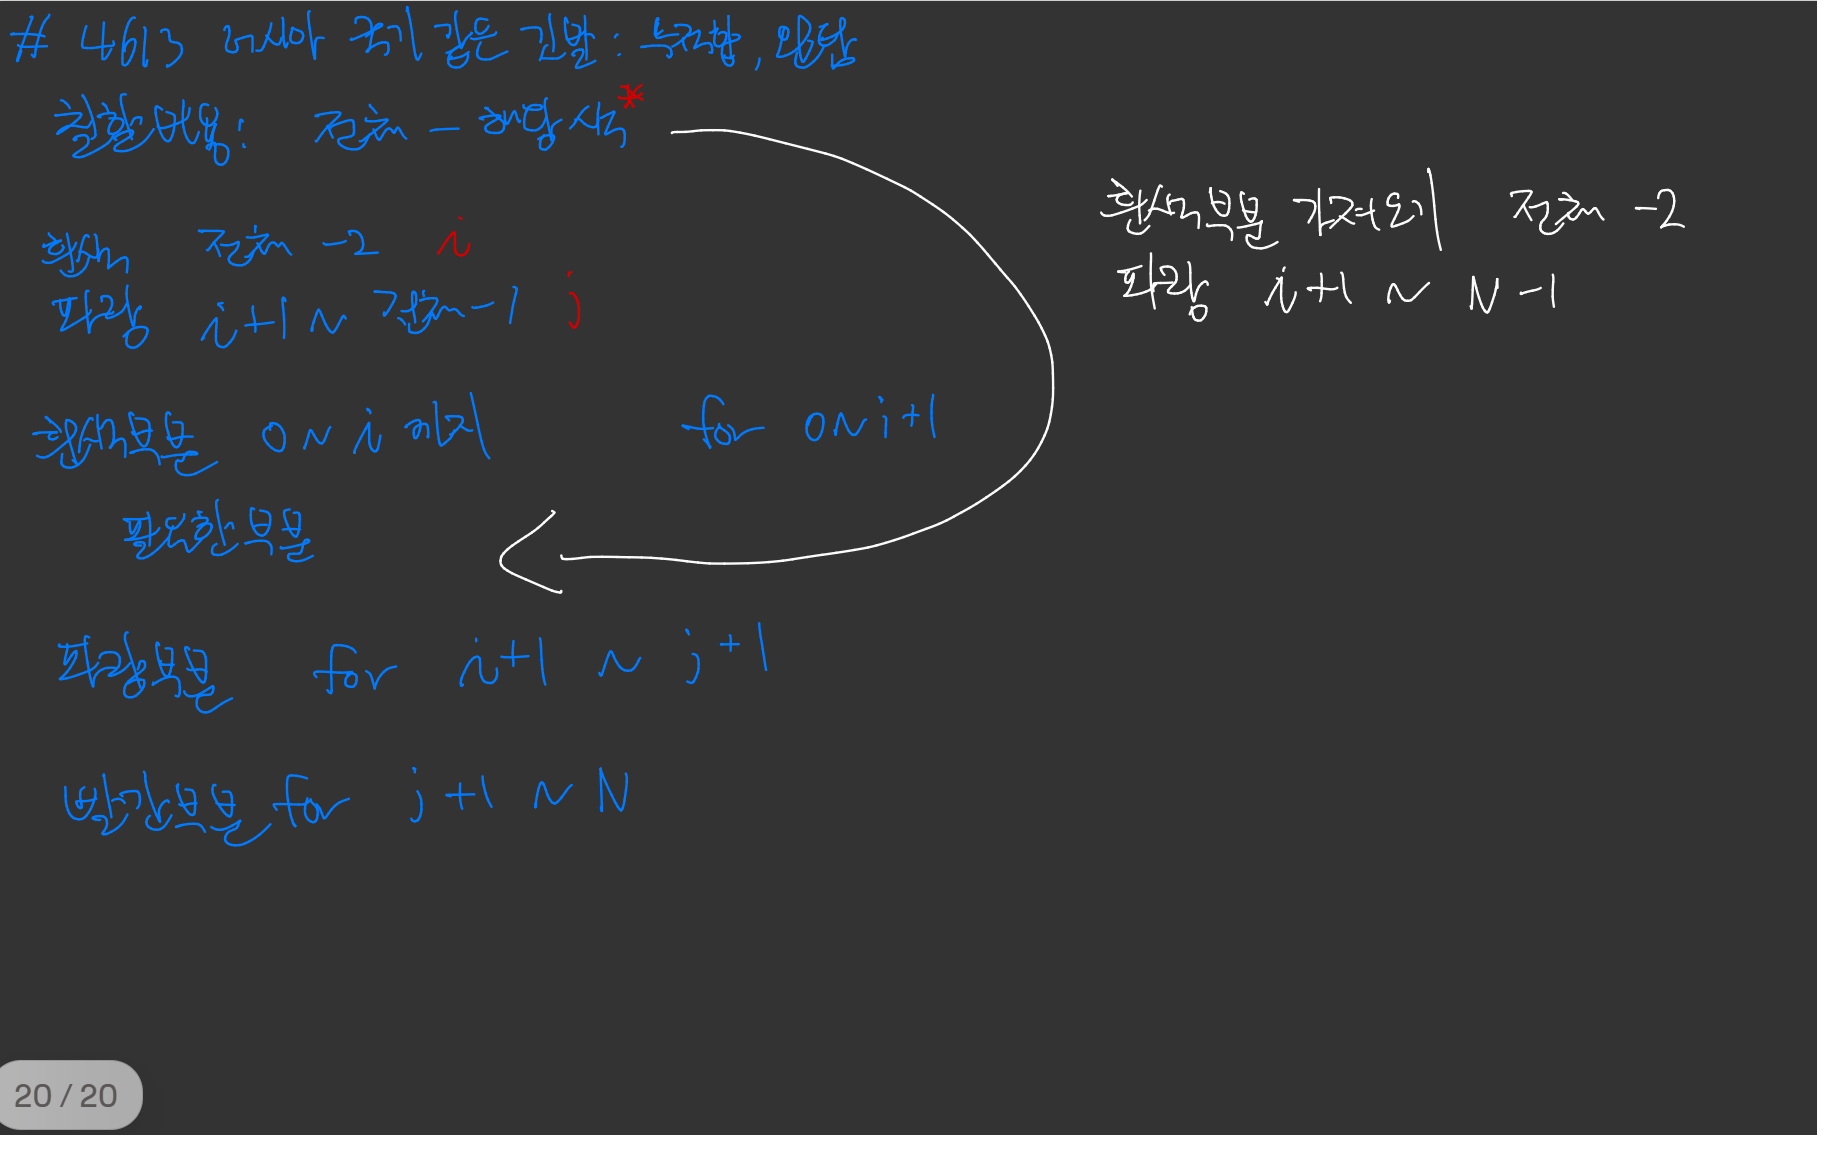 # 4613 러시아 국기 같은 깃발 : 누적합,
칠할 방법 : 전체 - 해당 색 *
흰색 전체 -2 i
파랑 i+1 ~ 전체-1 j
흰색부분 0 ~ i 까지 for 0~i+1
필요한부분
파랑부분 for i+1 ~ j+1
빨강부분 for j+1 ~ N
흰색부분 가져오기 전체 -2
파랑 i+1 ~ N-1
20 / 20